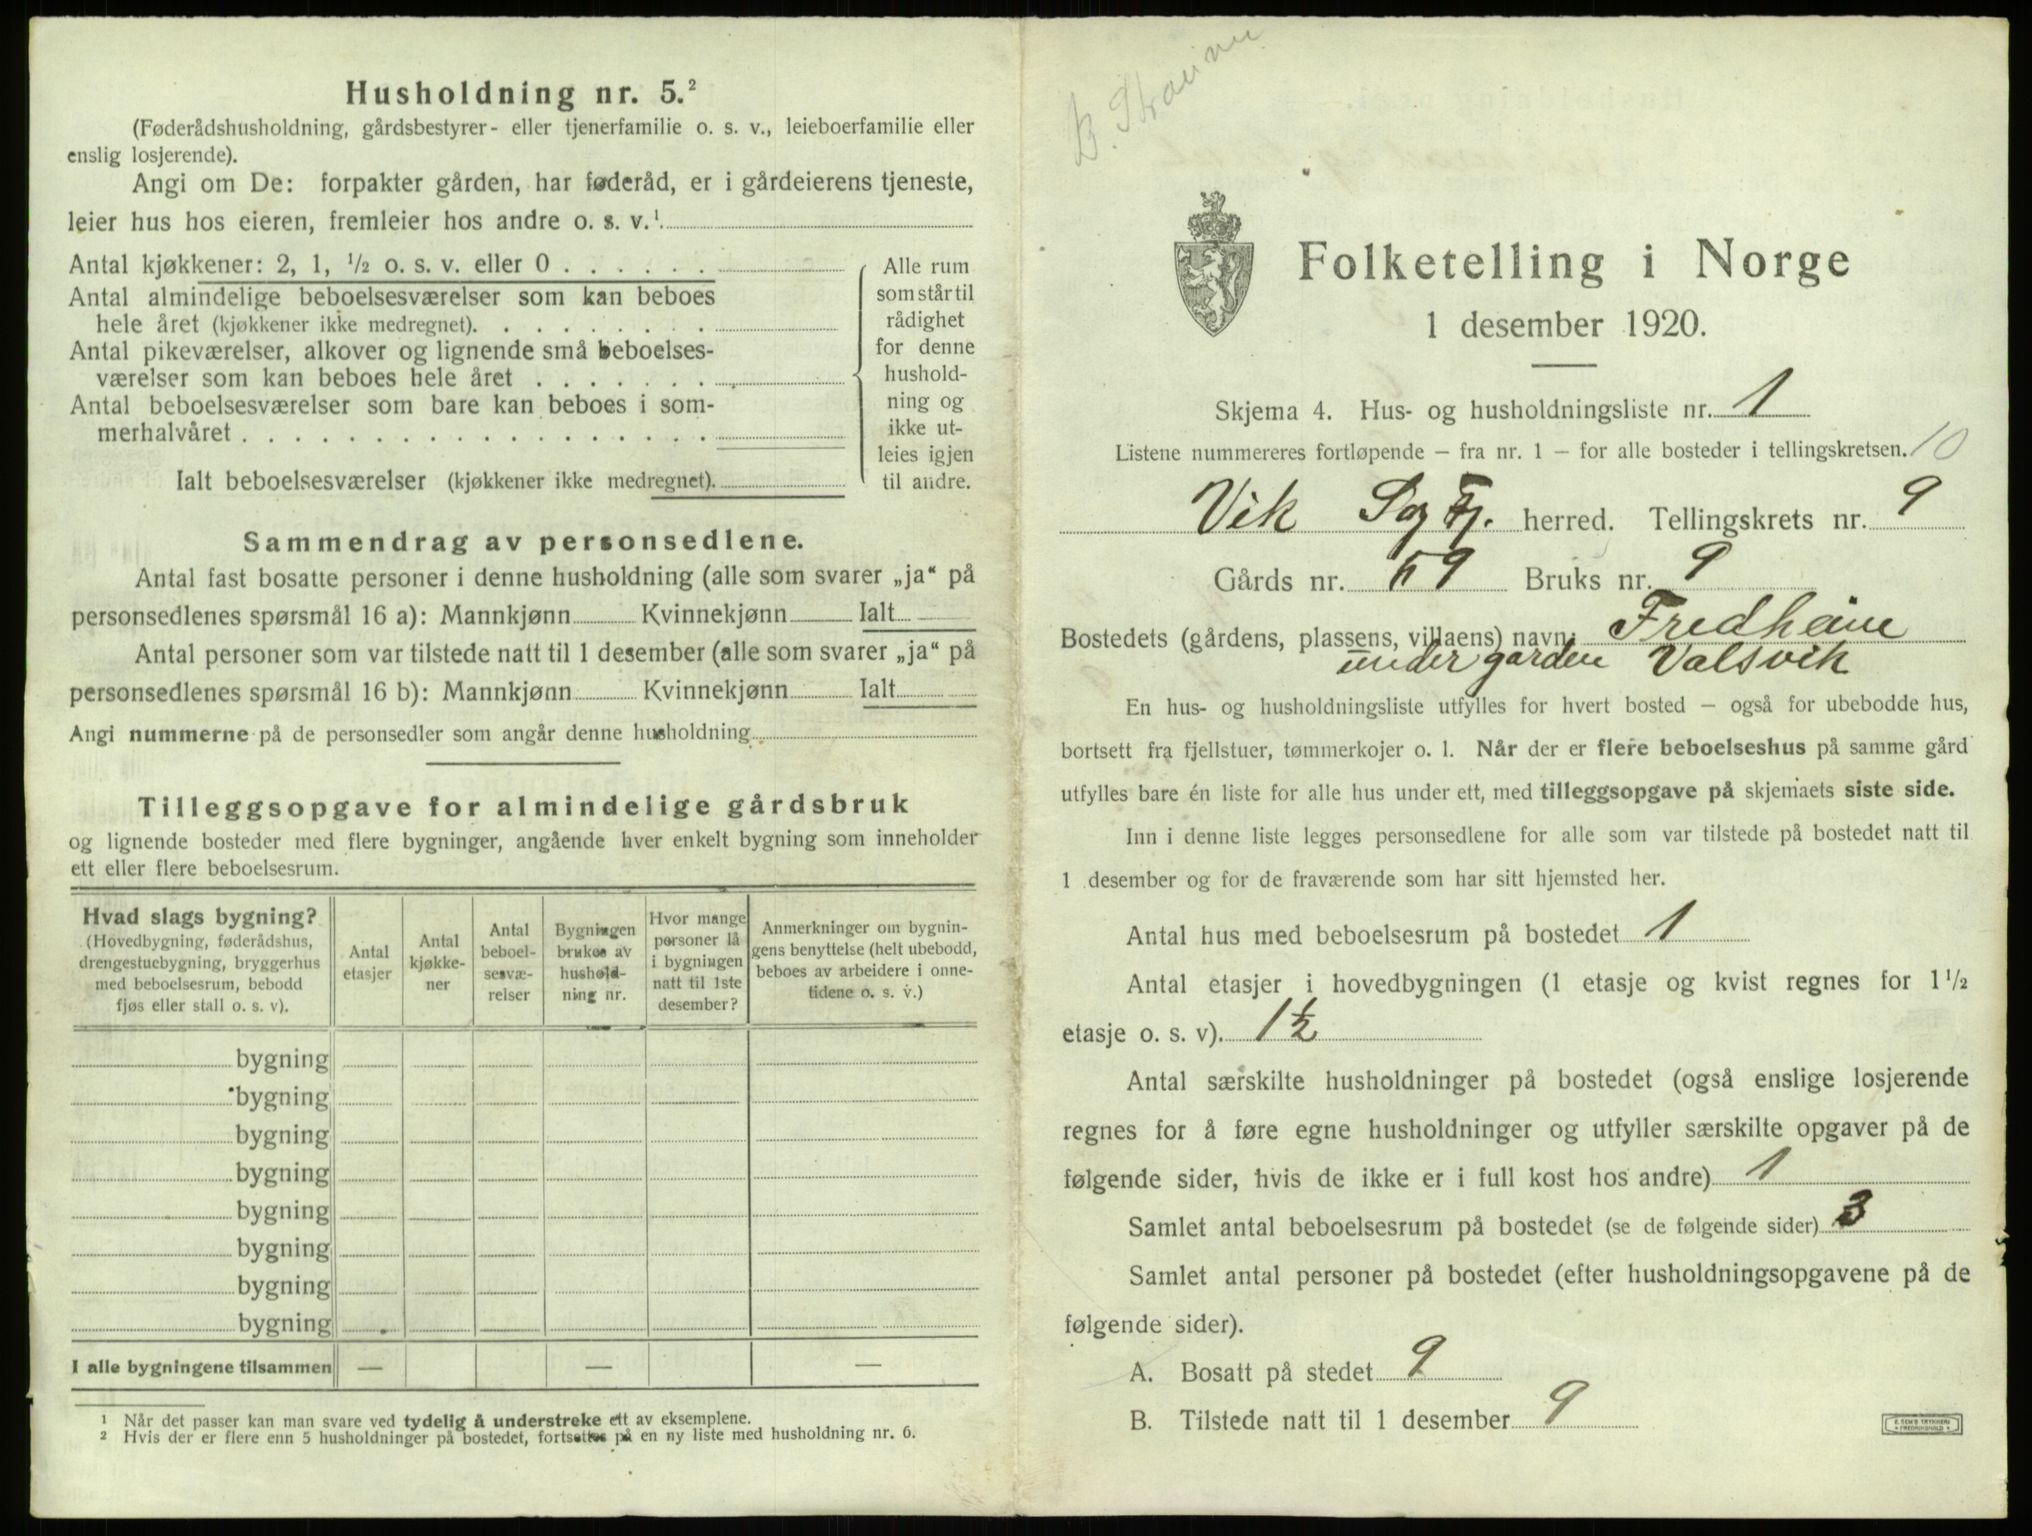 Husholdning nr. 5.²
(Føderådshusholdning, gårdsbestyrer- eller tjenerfamilie o. s. v., leieboerfamilie eller
enslig losjerende).
Angi om De: forpakter gården, har føderåd, er i gårdeierens tjeneste,
leier hus hos eieren, fremleier hos andre o. s. v.¹
Antal kjøkkener: 2, 1, ½ o. s. v. eller 0 . . . . . .
Antal almindelige beboelsesværelser som kan beboes
hele året (kjøkkener ikke medregnet). . . . . . . . .
Antal pikeværelser, alkover og lignende små beboelses-
værelser som kan beboes hele året . . . . . . .
Antal beboelsesværelser som bare kan beboes i som-
merhalvåret . . . . . . . . . . . . . . . . . .
Alle rum
som står til
rådighet
for denne
hushold-
ning og
ikke ut-
leies igjen
til andre.
Ialt beboelsesværelser (kjøkkener ikke medregnet).
Sammendrag av personsedlene.
Antal fast bosatte personer i denne husholdning (alle som svarer „ja“ på
personsedlenes spørsmål 16 a): Mannkjønn Kvinnekjønn Ialt
Antal personer som var tilstede natt til 1 desember (alle som svarer „ja“ på
personsedlenes spørsmål 16 b): Mannkjønn Kvinnekjønn Ialt
Angi nummerne på de personsedler som angår denne husholdning
Tilleggsopgave for almindelige gårdsbruk
og lignende bosteder med flere bygninger, angående hver enkelt bygning som inneholder
ett eller flere beboelsesrum.
Hvad slags bygning?
(Hovedbygning, føderådshus,
drengestuebygning, bryggerhus
med beboelsesrum, bebodd
fjøs eller stall o. s. v).
Antal
etasjer
Antal
kjøkke-
ner
Antal
beboel-
sesvæ-
relser
Bygningen
brukes av
hushold-
ning nr.
Hvor mange
personer lå
i bygningen
natt til 1ste
desember?
Anmerkninger om bygnin-
gens benyttelse (helt ubebodd,
beboes av arbeidere i onne-
tidene o. s. v.)
bygning
bygning
bygning
bygning
bygning
bygning
bygning
bygning
I alle bygningene tilsammen — — —
¹ Når det passer kan man svare ved tydelig å understreke ett av eksemplene.
² Hvis der er flere enn 5 husholdninger på bostedet, fortsettes på en ny liste med husholdning nr. 6.
Folketelling i Norge
1 desember 1920.
Skjema 4. Hus- og husholdningsliste nr. 1
Listene nummereres fortløpende — fra nr. 1 — for alle bosteder i tellingskretsen. 10
Vik Sogn Fj. herred. Tellingskrets nr. 9
Gårds nr. 59 Bruks nr. 9
Bostedets (gårdens, plassens, villaens) navn: Fredheim
under garden Valsvik
En hus- og husholdningsliste utfylles for hvert bosted — også for ubebodde hus,
bortsett fra fjellstuer, tømmerkojer o. l. Når der er flere beboelseshus på samme gård
utfylles bare én liste for alle hus under ett, med tilleggsopgave på skjemaets siste side.
Inn i denne liste legges personsedlene for alle som var tilstede på bostedet natt til
1 desember og for de fraværende som har sitt hjemsted her.
Antal hus med beboelsesrum på bostedet 1
Antal etasjer i hovedbygningen (1 etasje og kvist regnes for 1½
etasje o. s. v). 1½
Antal særskilte husholdninger på bostedet (også enslige losjerende
regnes for å føre egne husholdninger og utfyller særskilte opgaver på de
følgende sider, hvis de ikke er i full kost hos andre) 1
Samlet antal beboelsesrum på bostedet (se de følgende sider) 3
Samlet antal personer på bostedet (efter husholdningsopgavene på de
følgende sider).
A. Bosatt på stedet 9
B. Tilstede natt til 1 desember 9